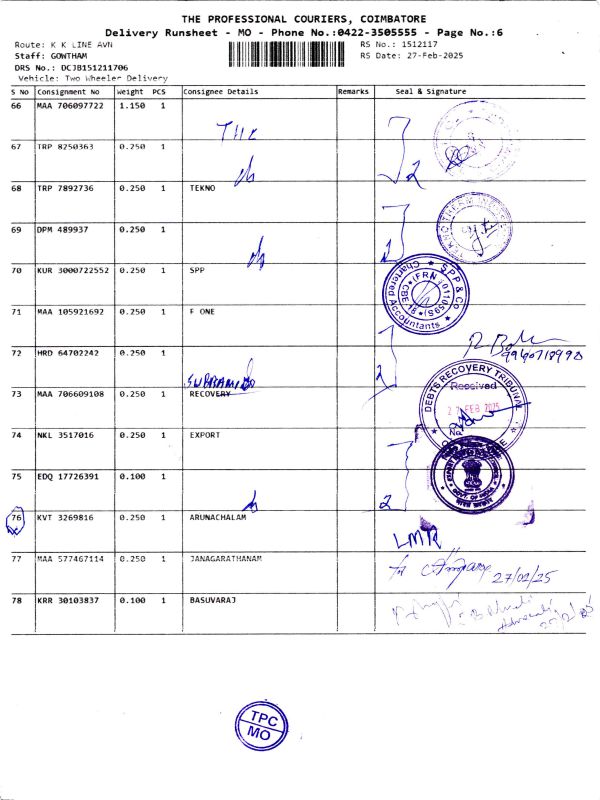 THE PROFESSIONAL COURIERS, COIMBATORE
Delivery Runsheet - MO - Phone No.:0422-3505555 - Page No.:6
Route: K K LINE AVN
RS No.: 1512117
Staff: GOWTHAM
RS Date: 27-Feb-2025
DRS No.: DCJB151211706
Vehicle: Two Wheeler Delivery
S No Consignment No Weight PCS Consignee Details Remarks Seal & Signature
66 MAA 706097722 1.150 1
67 TRP 8250363 0.250 1
2
68 TRP 7892736 0.250 1 TEKNO
69 DPM 489937 0.250 1
2
70 KUR 3000722552 0.250 1 SPP
SPP & Co
Chartered Accountants
71 MAA 105921692 0.250 1 F ONE
72 HRD 64702242 0.250 1
2
73 MAA 706609108 0.250 1 RECOVERY
DEBTS RECOVERY TRIBUNAL
Received
FEB 2025
74 NKL 3517016 0.250 1 EXPORT
GOVT. OF INDIA
75 EDQ 17726391 0.100 1
2
76 KVT 3269816 0.250 1 ARUNACHALAM
LMR
77 MAA 577467114 0.250 1 JANAGARATHANAM
27/02/25
78 KRR 30103837 0.100 1 BASUVARAJ
Advocate
TPC
MO